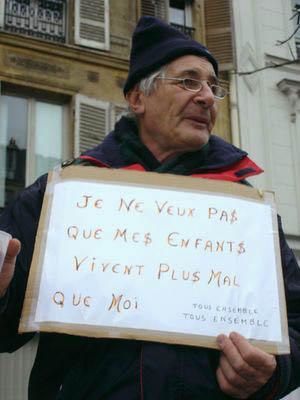 Je Ne Veux Pas
Que Mes Enfants
Vivent Plus Mal
Que Moi
TOUS ENSEMBLE
TOUS ENSEMBLE